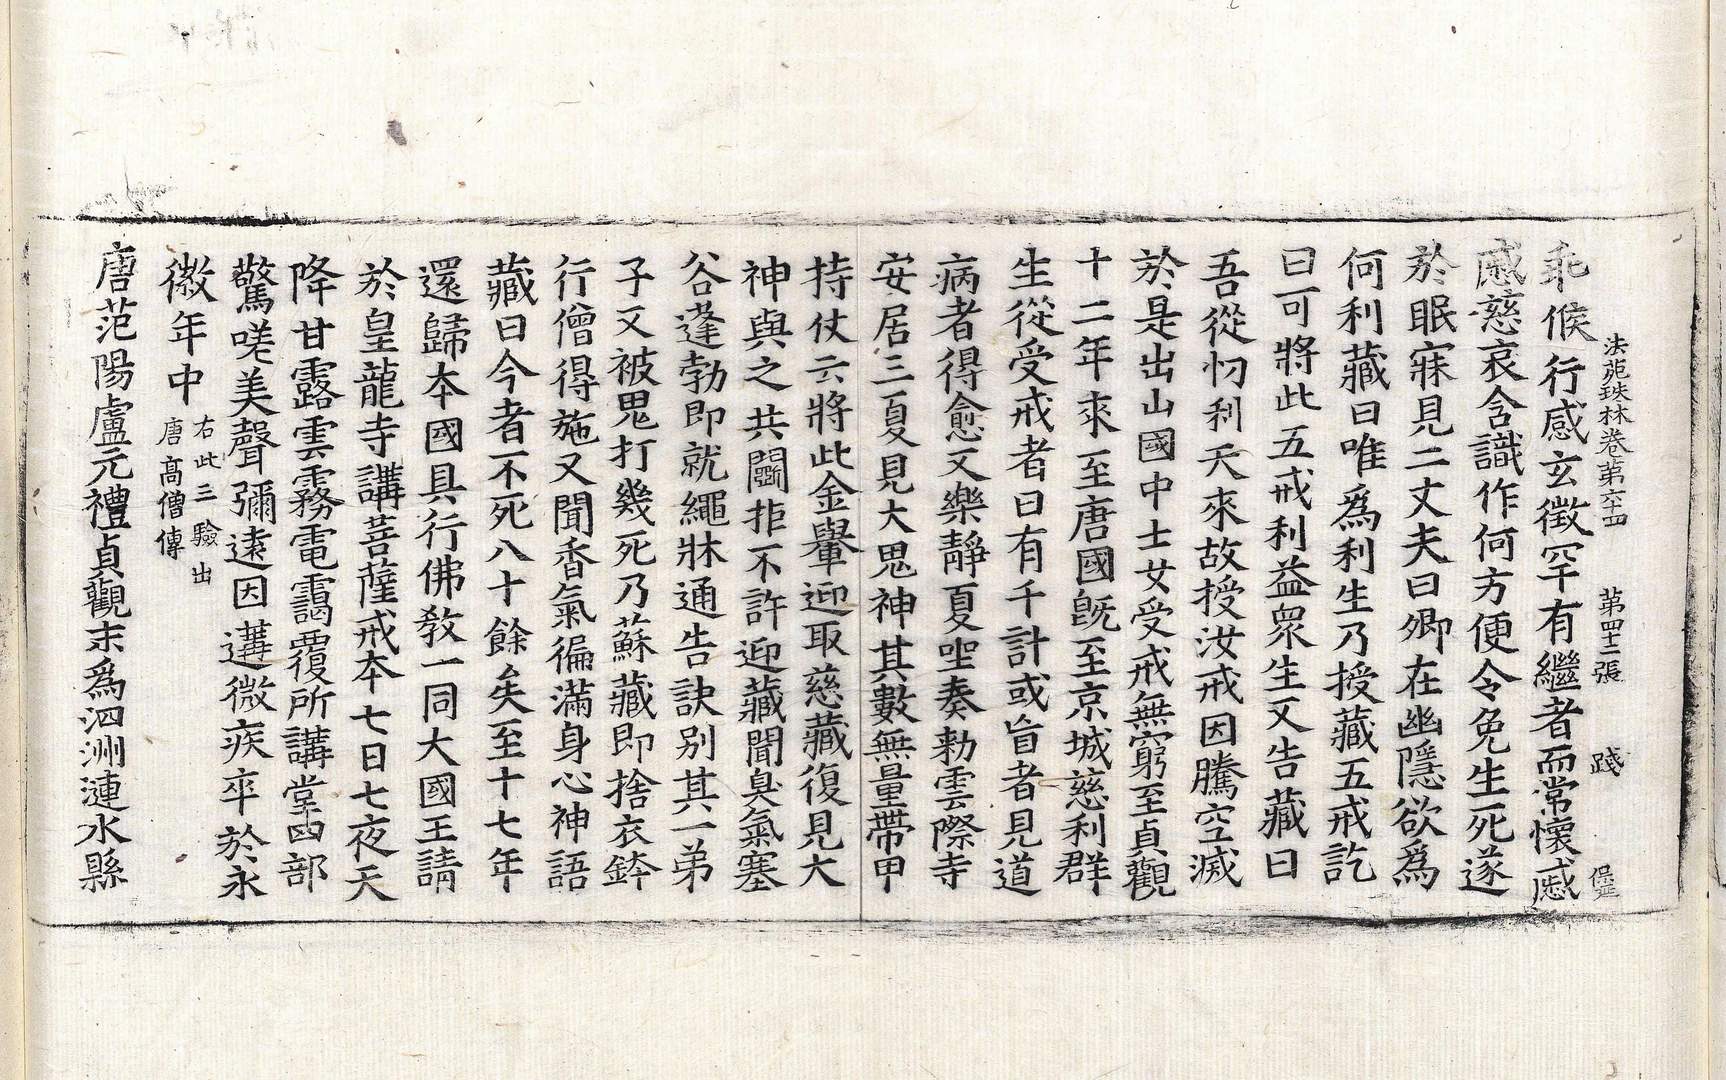 法苑珠林卷第六十四 第四十二張 踐
乖候行感玄徵罕有繼者而常懷慼
慼慈哀含識作何方便令免生死遂
於眠寐見二丈夫曰卿在幽隱欲爲
何利藏曰唯爲利生乃授藏五戒訖
曰可將此五戒利益衆生又告藏曰
吾從忉利天來故授汝戒因騰空滅
於是出山國中士女受戒無窮至貞觀
十二年來至唐國旣至京城慈利群
生從受戒者日有千計或盲者見道
病者得愈又樂靜夏坐奏勅雲際寺
安居三夏見大鬼神其數無量帶甲
持仗云將此金轝迎取慈藏復見大
神與之共鬬拒不許迎藏聞臭氣塞
谷蓬勃即就繩牀通告訣別其一弟
子又被鬼打幾死乃蘇藏即捨衣鉢
行僧得施又聞香氣徧滿身心神語
藏曰今者不死八十餘矣至十七年
還歸本國具行佛教一同大國王請
於皇龍寺講菩薩戒本七日七夜天
降甘露雲霧奄靄覆所講堂四部
驚嗟美聲彌遠因遘微疾卒於永
徽年中 右此三驗出
唐高僧傳
唐范陽盧元禮貞觀末爲泗洲漣水縣